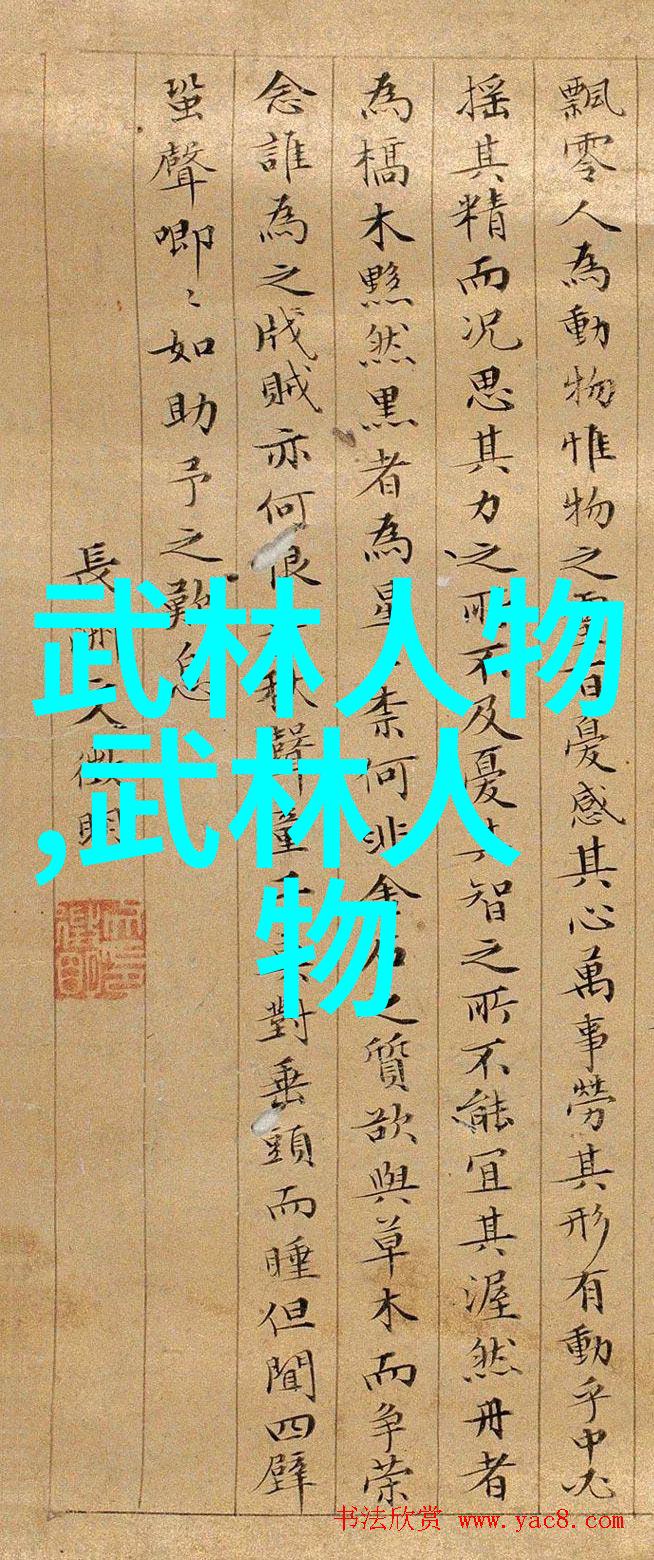 飄零人為動物惟物之靈百憂感其心萬事勞其形有動乎中必
搖其精而况思其力之所不及憂其智之所不能宜其渥然丹者
為槁木黟然黒者為星柰何非金石之質欲與草木而争荣
念誰為之戕賊亦何恨秋聲童子莫對垂頭而睡但聞四壁
蛩聲唧〻如助予之歎息
長洲文徵明
武林人物
,武林人
物
书法欣赏 www.yac8.com